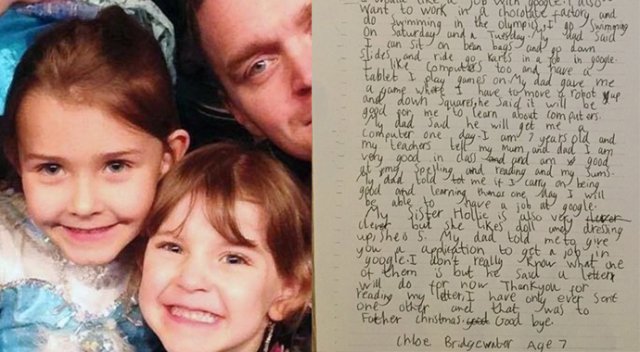 like a job with google. I also
want to work in a chocolate factory and
do swimming in the olympics. I go swimming
On Saturday and a Tuesday. My dad Said
I can sit on bean bags and go down
slides and ride go karts in a job in google.
I like computers too and have a
tablet I play games on. My dad gave me
a game where I have to move a robot up
and down squares, he said it will be
good for me to learn about computers.
My dad said he will get me a
computer one day. I am 7 years old and
my teachers tell my mum and dad I am
very good in class and am good
at my spelling and reading and my sums.
My dad told me if I carry on being
good and learning then one day I will
be able to have a job at google.
My sister Hollie is also very
clever but she likes doll and dressing
up, she is 5. My dad told me to give
you a application to get a job in
google. I don't really know what one
of them is but he said a letter
will do for now. Thankyou for
reading my letter, I have only ever sent
one other and that was to
Father christmas. Good bye.
Chloe Bridgewater Age 7